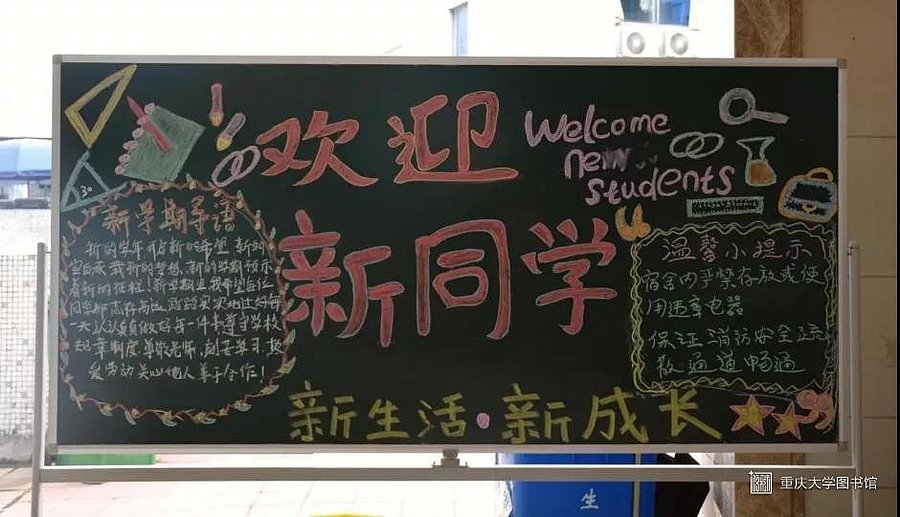 欢迎
新同学
Welcome
new
students
新学期寄语
新的学年 开启新的希望 新的
空白承载新的梦想.新的学期预示
着新的征程!新学期里我希望各位
同学都志存高远,踏踏实实地过好每
一天认认真真做好每一件事遵守学校
规章制度.尊敬老师,刻苦学习.热
爱劳动关心他人善于合作!
温馨小提示
宿舍内严禁存放或使
用违章电器
保证消防安全疏
散通道畅通
新生活·新成长
30
生
重庆大学图书馆